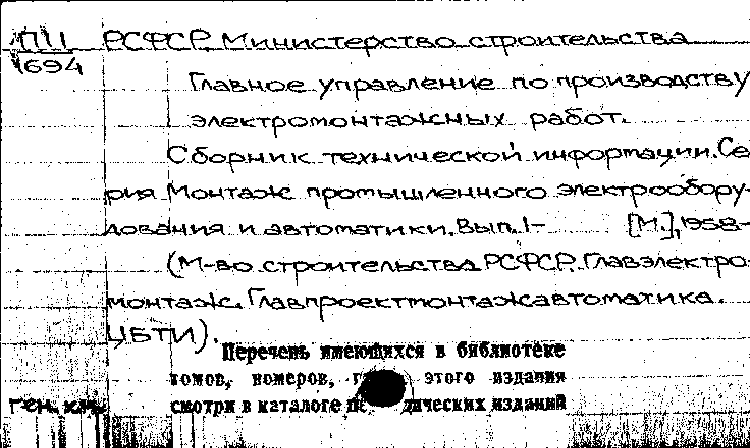 П11 РСФСР. Министерство строительства
1694
Главное управление по производству
электромонтажных работ.
Сборник технической информации. Се
рия Монтаж промышленного электрообору-
дования и автоматики. Вып. 1- [М.], 1958-
(М-во строительства РСФСР. Главэлектро-
монтаж. Главпроектмонтажавтоматика.
ЦБТИ).
Перечень имеющихся в библиотеке
томов, номеров, этого издания
ген. кат. смотри в каталоге изданий